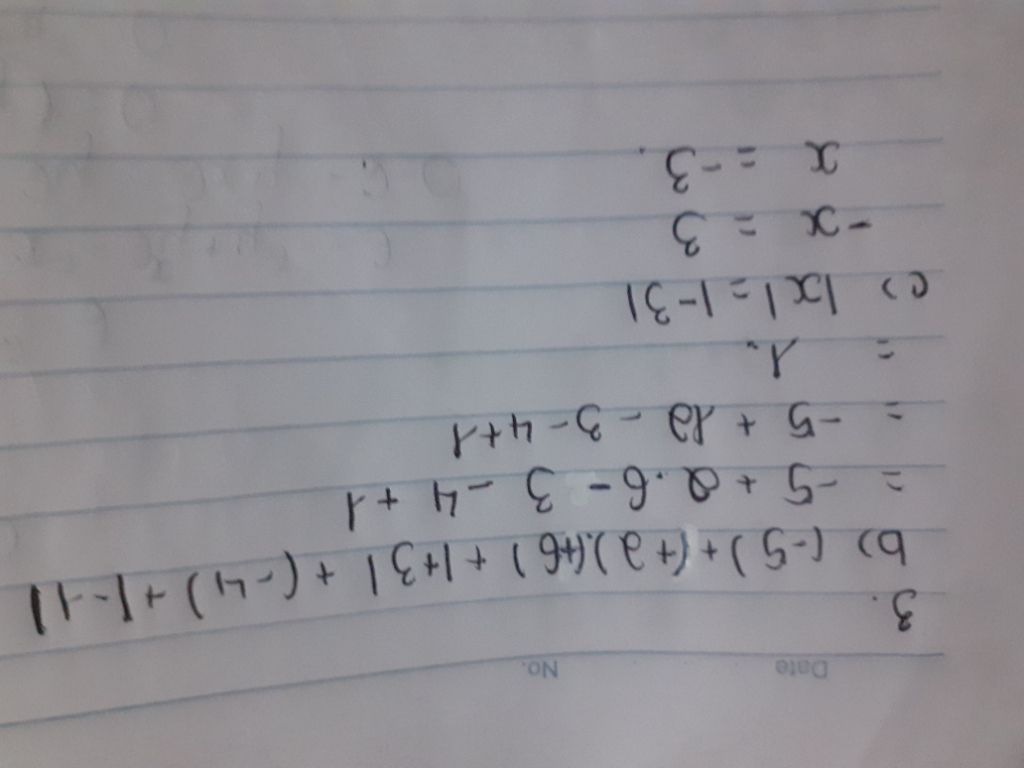 Date No.
3.
b) (-5) + (+2).(+6) + |+3| + (-4) + |-1|
= -5 + 2.6 - 3 - 4 + 1
= -5 + 12 - 3 - 4 + 1
= 1.
c) |x| = |-3|
-x = 3
x = -3.